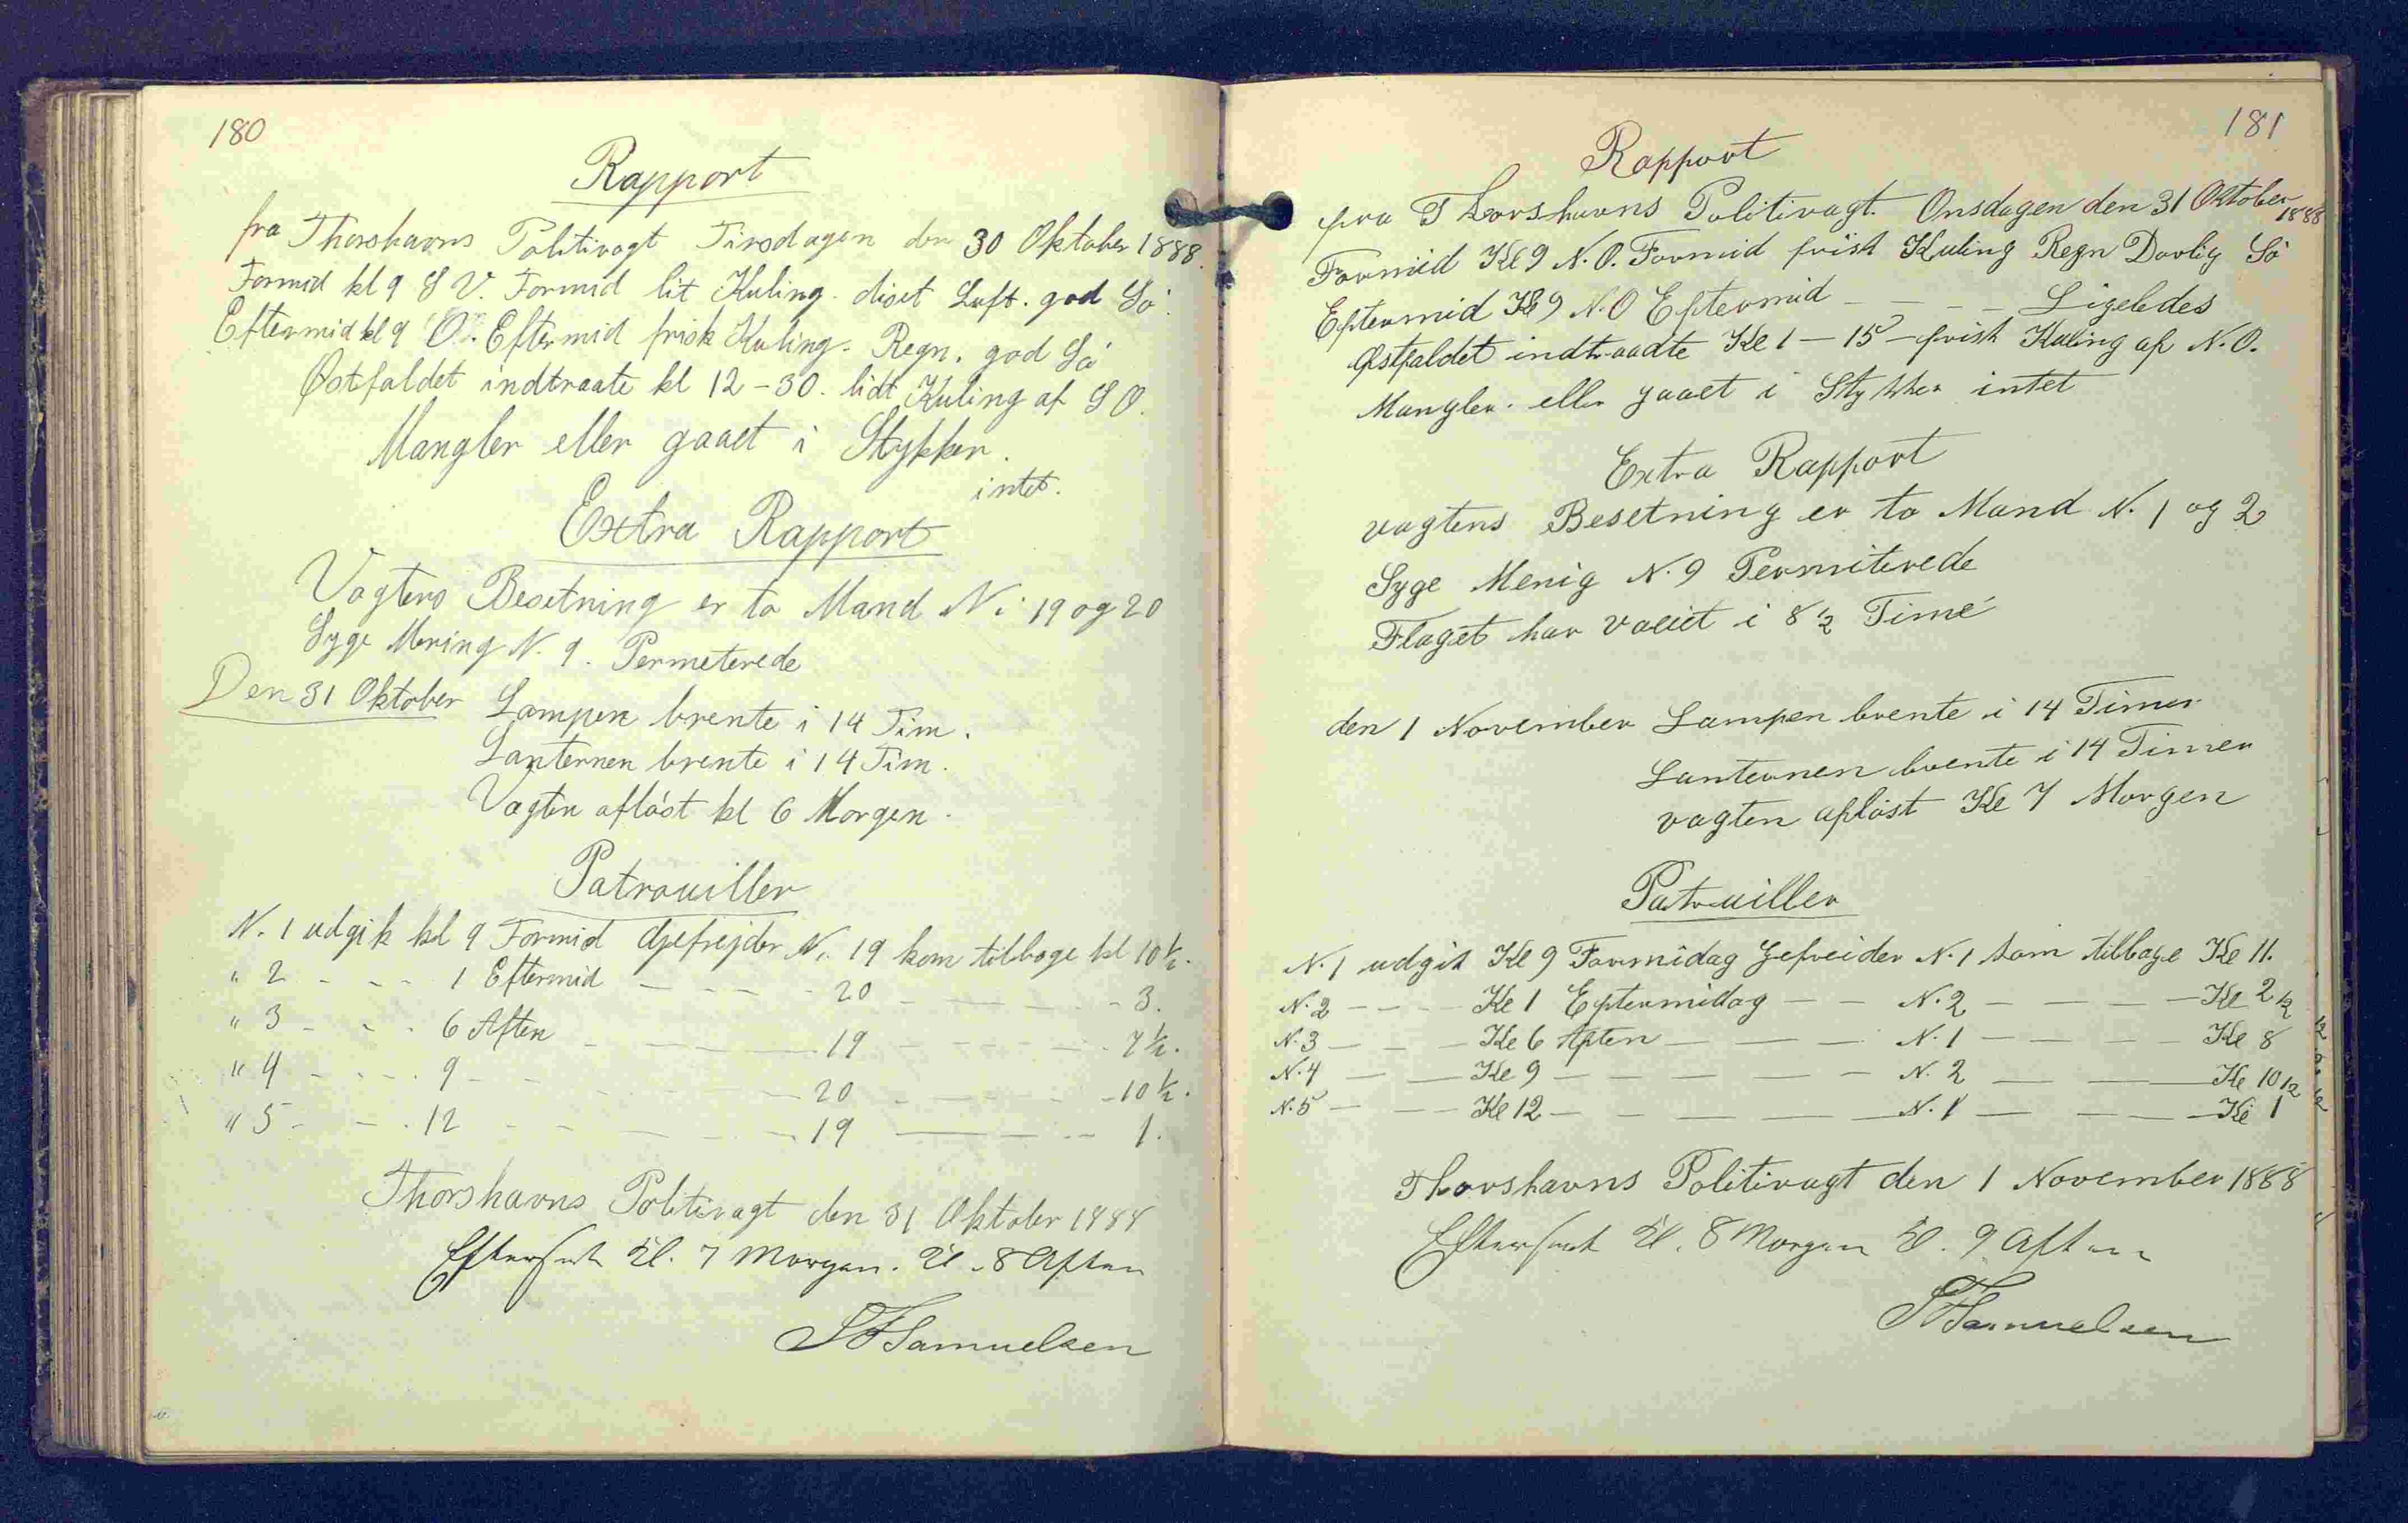 180
Rapport
fra Thorshavns Politivagt Tirsdagen den 30 Oktober 1888.
Formid kl 9 S V. Formid lit Kuling. diset Luft. god Sö.
Eftermid kl 9 O. Eftermid frisk Kuling. Regn. god Sö
Østfaldet indtraate kl 12-30. lidt Kuling af S O.
Mangler eller gaaet i Stykker.
intet.
Extra Rapport
Vagtens Besetning er to Mand N. 19 og 20
Syge Mening N. 9. Permeterede
Den 31 Oktober Lampen brente i 14 Tim.
Lanternen brente i 14 Tim.
Vagten aflöst kl 6 Morgen.
Patrouiller
N. 1 udgik kl 9 Formid Gjefrejder N. 19 kom tilbage kl 10 1/2.
" 2 - - - 1 Eftermid - - - 20 - - - 3.
" 3 - - - 6 Aften - - - 19 - - - 7 1/2.
" 4 - - - 9 - - - 20 - - - 10 1/2.
" 5 - - - 12 - - - 19 - - - 1.
Thorshavns Politivagt den 31 Oktober 1888
Efterseet Kl. 7 Morgen. Kl. 8 Aften
Samuelsen
181
Rapport
fra Thorshavns Politivagt. Onsdagen den 31 Oktober 1888
Formid Kl 9 N.O. Formid frisk Kuling Regn Dorlig Sö
Eftermid Kl 9 N.O Eftermid - - - Ligeledes
Østfaldet indtraadte Kl 1-15 - frisk Kuling af N.O.
Mangler eller gaaet i Stykker intet
Extra Rapport
vagtens Besetning er to Mand N. 1 og 2
Syge Menig N. 9 Permiterede
Flaget har vaeiet i 8 1/2 Time
den 1 November Lampen brente i 14 Timer
Lanternen brente i 14 Timer
vagten aflöst Kl 7 Morgen
Patruiller
N. 1 udgik Kl 9 Formidag Gefreider N. 1 kom tilbage Kl 11.
N. 2 - - - Kl 1 Eftermidag - - N. 2 - - - Kl 2 1/2
N. 3 - - - Kl 6 Aften - - - N. 1 - - - Kl 8
N. 4 - - Kl 9 - - - N. 2 - - - Kl 10 1/2
N. 5 - - - Kl 12 - - - N. 1 - - - Kl 1
Thorshavns Politivagt den 1 November 1888
Efterseet Kl. 8 Morgen Kl. 9 Aften
Samuelsen